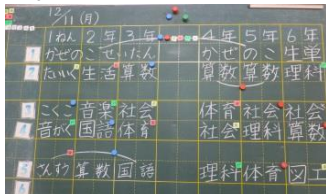 12/11(月)
1ねん 2年 3年 4年 5年 6年
かぜのこせいたん かぜのこ 生単
たいく 生活 算数 算数 算数 理科
こくご 音楽 社会 体育 社会 社会
音がく 国語 体育 社会 理科 算数
さんすう 算数 国語 理科 体育 図工